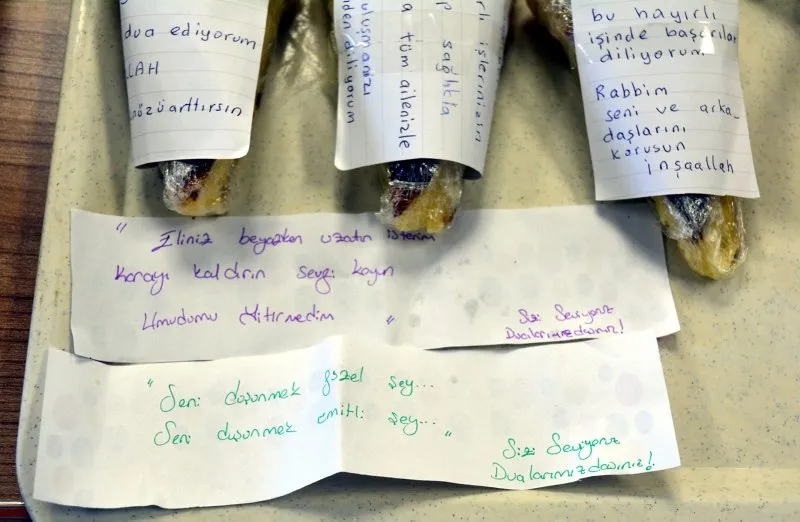 dua ediyorum
LAH
nüzü arttırsın
rlı işlerinizin
p sağlıkla
a tüm ailenizle
uluşmanızı
den diliyorum
bu hayırlı
işinde başarılar
diliyorum
Rabbim
seni ve arka_
daşlarını
korusun
inşaallah
" Eliniz beyazken uzatın isterim
Karayı kaldırın sevgi koyun
Umudumu yitirmedim "
Sizi Seviyoruz
Dualarımızdasınız!
" Seni düşünmek güzel şey...
Seni düşünmek ümitli şey... "
Sizi Seviyoruz
Dualarımızdasınız!